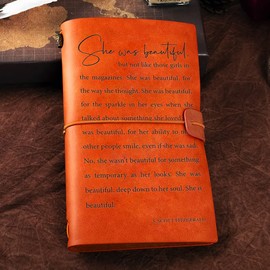 She was beautiful
but not like those girls in
the magazines. She was beautiful, for
the way she thought. She was beautiful,
for the sparkle in her eyes when she
talked about something she loved. She
was beautiful, for her ability to make
other people smile, even if she was sad.
No, she wasn't beautiful for something
as temporary as her looks. She was
beautiful, deep down to her soul. She is
beautiful.